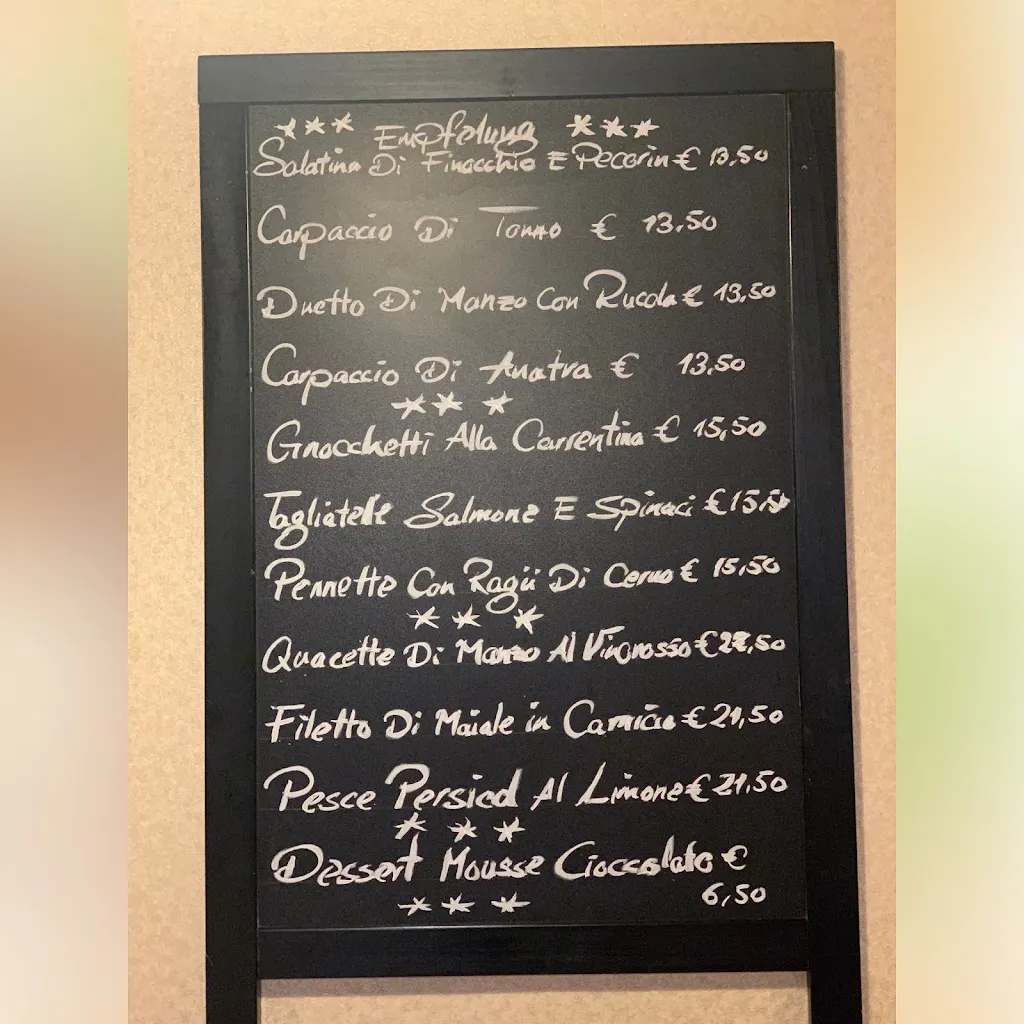 *** Empfelung ***
Salatina Di Finocchio E Pecorin € 13,50
Carpaccio Di Tonno € 13,50
Duetto Di Manzo Con Rucola € 13,50
Carpaccio Di Anatra € 13,50
*** 
Gnocchetti Alla Correntina € 15,50
Tagliatelle Salmone E Spinaci € 15,50
Pennette Con Ragü Di Cervo € 15,50
***
Quacette Di Manzo Al Vinorosso € ,50
Filetto Di Maiale in Camicia € 21,50
Pesce Persico Al Limone € 21,50
***
Dessert Mousse Cioccolato €
6,50
***